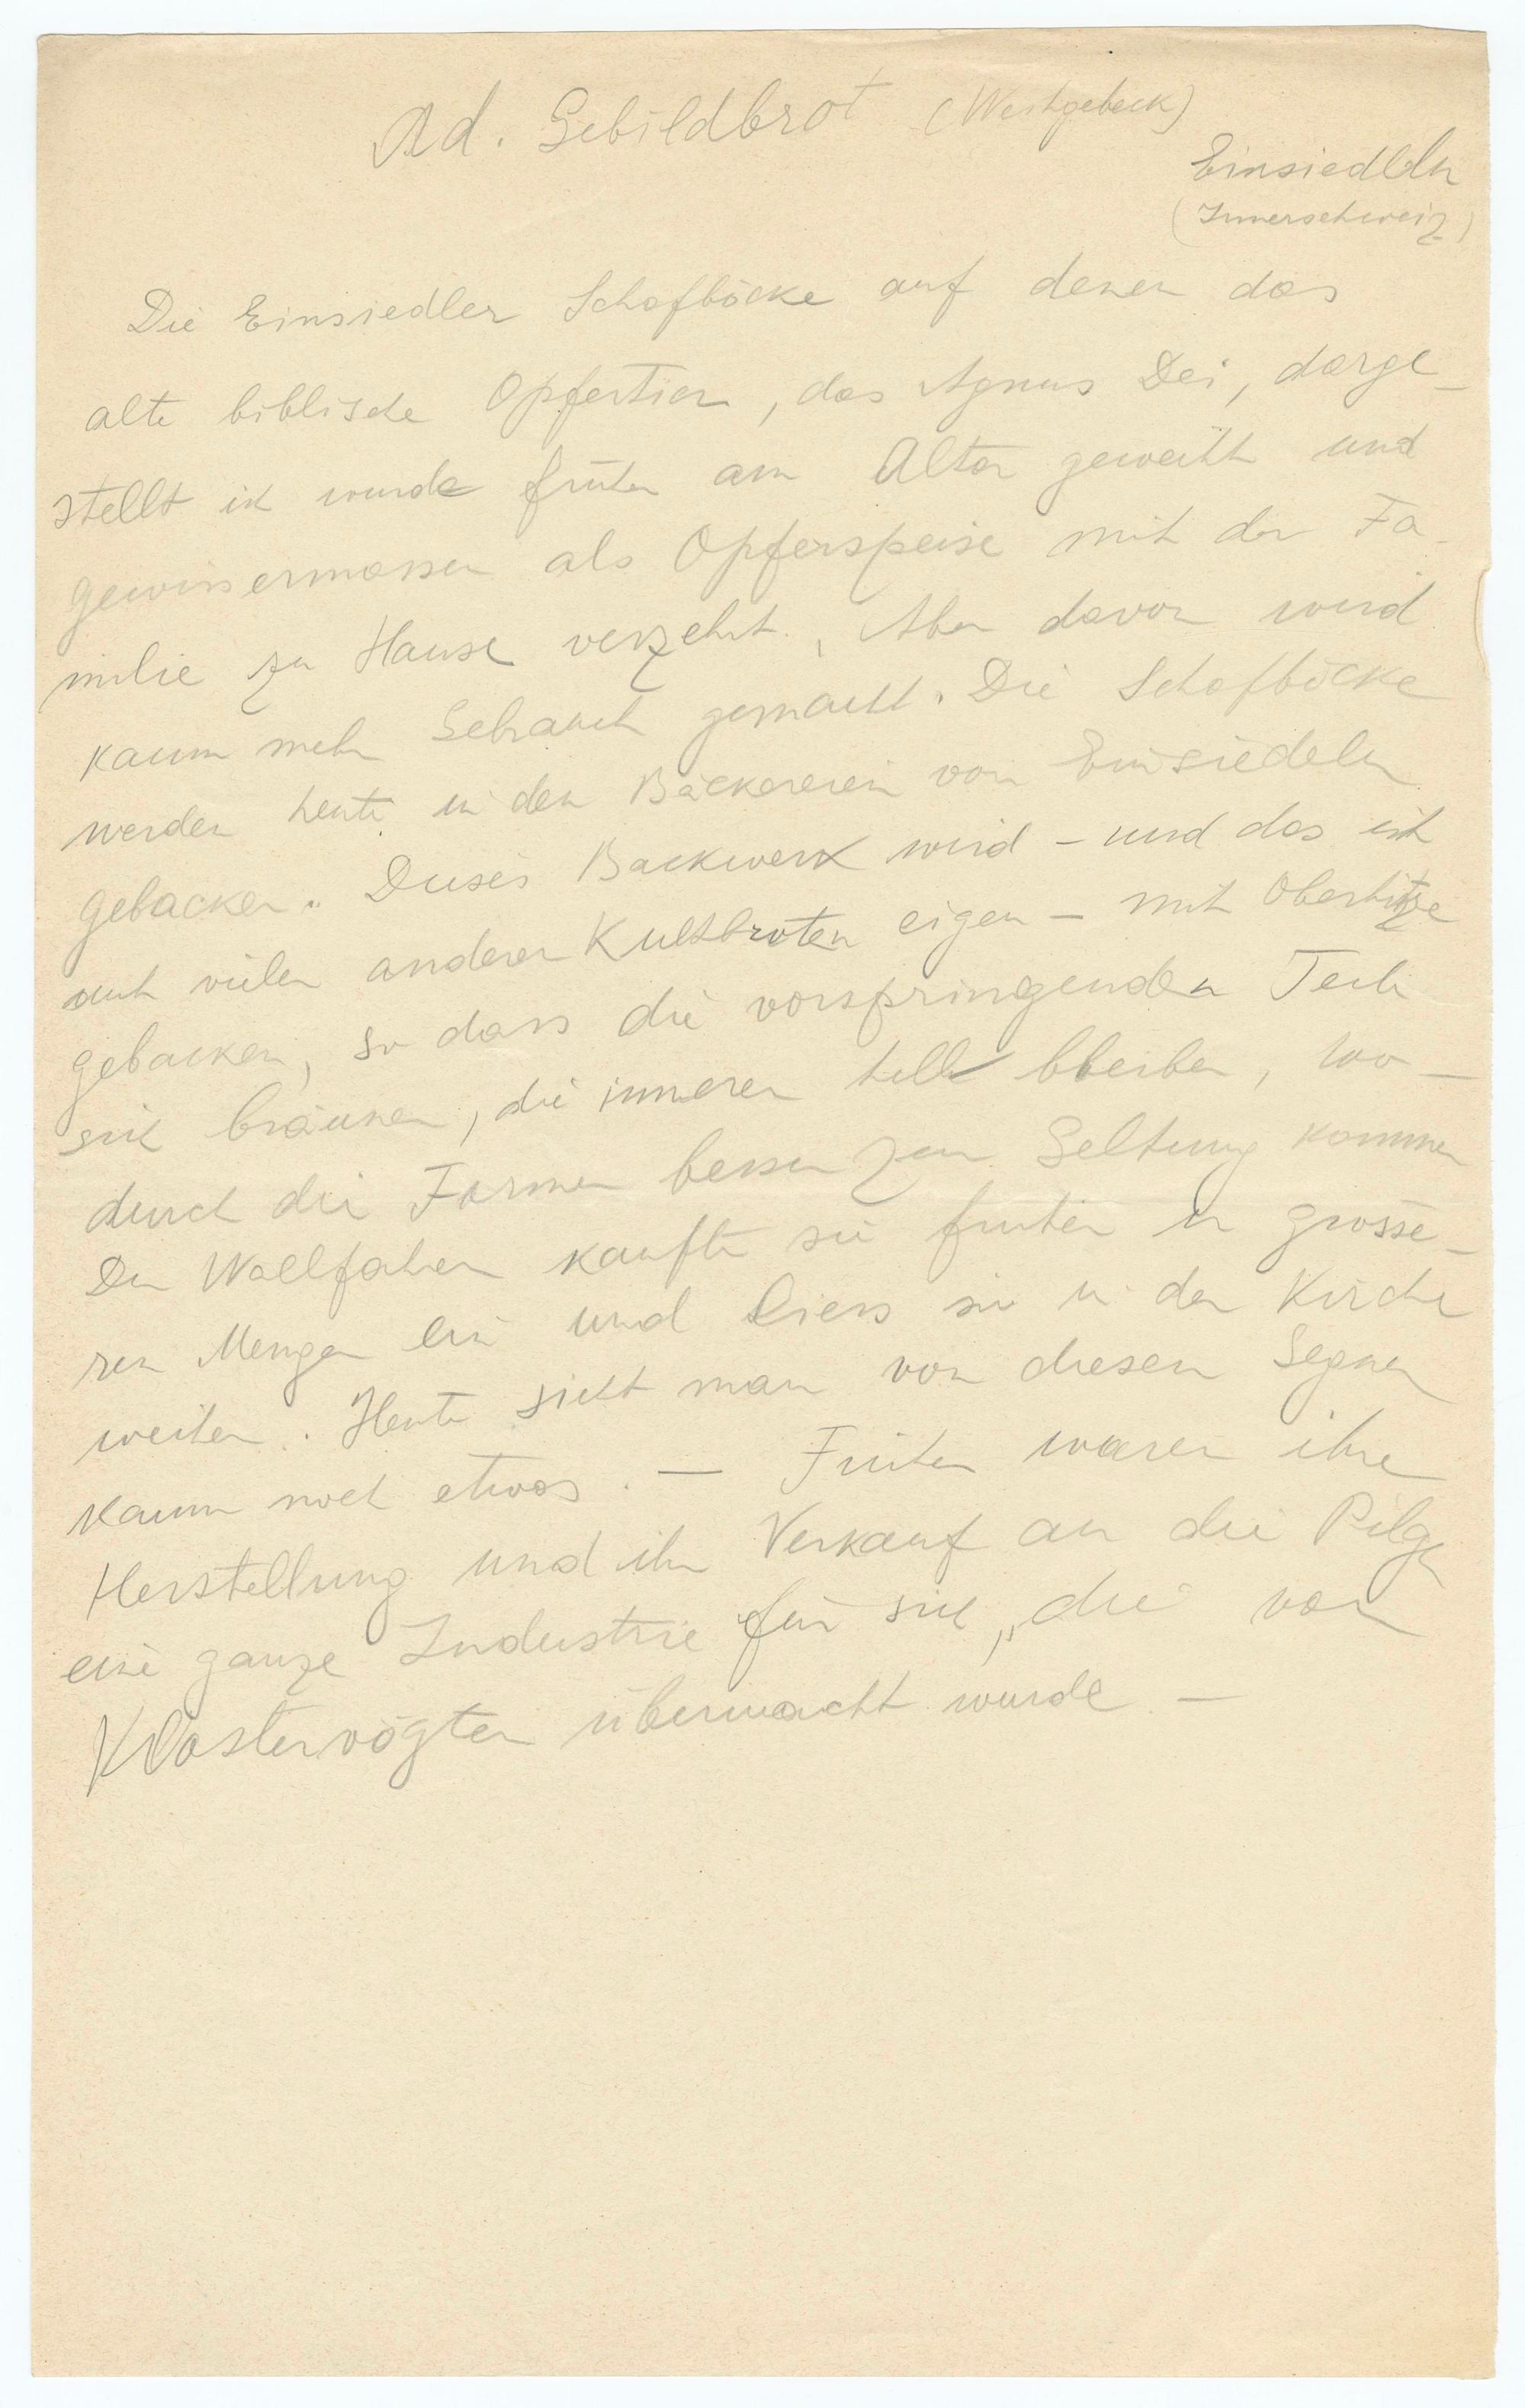 Ad. Gebildbrot (Weihgebäck)
Einsiedeln
(Innerschweiz)
Die Einsiedler Schafböcke auf denen das
alte biblische Opfertier, das Agnus Dei, darge-
stellt ist wurde früher am Altar geweiht und
gewissermassen als Opferspeise mit der Fa-
milie zu Hause verzehrt. Aber davon wird
kaum mehr Gebrauch gemacht. Die Schafböcke
werden heute in den Bäckereien von Einsiedeln
gebacken. Dieses Backwerk wird - und das ist
auch vielen anderen Kultbroten eigen - mit Oberhitze
gebacken, so dass die vorspringenden Teile
sich bräunen, die inneren hell bleiben, wo-
durch die Formen besser zur Geltung kommen
Der Wallfahrer kaufte sie früher in grösse-
ren Mengen ein und liess sie in der Kirche
weihen. Heute sieht man von diesem Segnen
kaum noch etwas. — Früher waren ihre
Herstellung und ihr Verkauf an die Pilger
eine ganze Industrie für sich, die von
Klostervögten überwacht wurde -